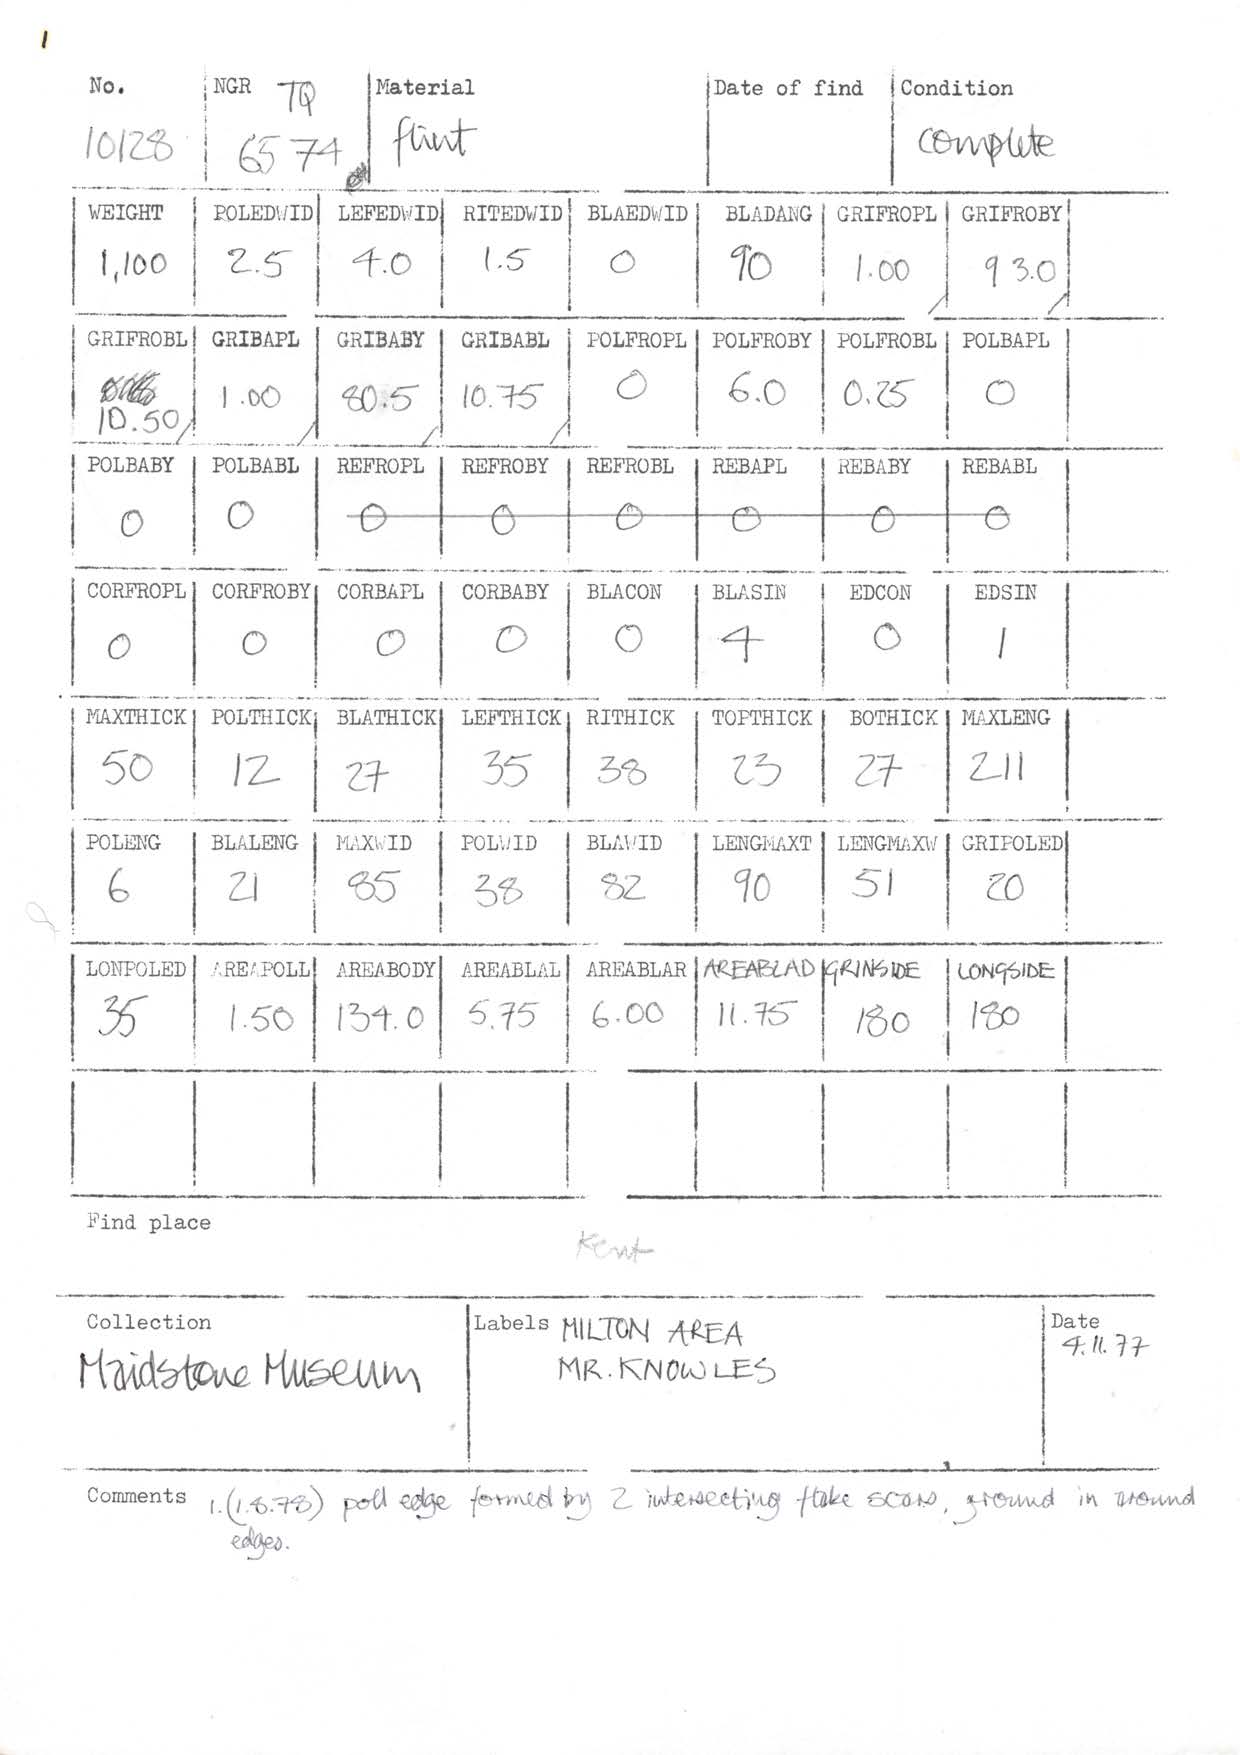 1
No. NGR TQ Material Date of find Condition
10128 65 74 flint complete
WEIGHT POLEDWID LEFEDWID RITEDWID BLAEDWID BLADANG GRIFROPL GRIFROBY
1,100 2.5 4.0 1.5 0 90 1.00 93.0
GRIFROBL GRIBAPL GRIBABY GRIBABL POLFROPL POLFROBY POLFROBL POLBAPL
10.50 1.00 80.5 10.75 0 6.0 0.25 0
POLBABY POLBABL REFROPL REFROBY REFROBL REBAPL REBABY REBABL
0 0 0 0 0 0 0 0
CORFROPL CORFROBY CORBAPL CORBABY BLACON BLASIN EDCON EDSIN
0 0 0 0 0 4 0 1
MAXTHICK POLTHICK BLATHICK LEFTHICK RITHICK TOPTHICK BOTHICK MAXLENG
50 12 27 35 38 23 27 211
POLENG BLALENG MAXWID POLWID BLAWID LENGMAXT LENGMAXW GRIPOLED
6 21 85 38 82 90 51 20
LONPOLED AREAPOLL AREABODY AREABLAL AREABLAR AREABLAD GRINSIDE LONGSIDE
35 1.50 134.0 5.75 6.00 11.75 180 180
Find place
Kent
Collection Labels MILTON AREA Date
Maidstone Museum MR. KNOWLES 4.11.77
Comments 1. (1.8.78) poll edge formed by 2 intersecting flake scars, ground in around
edges.